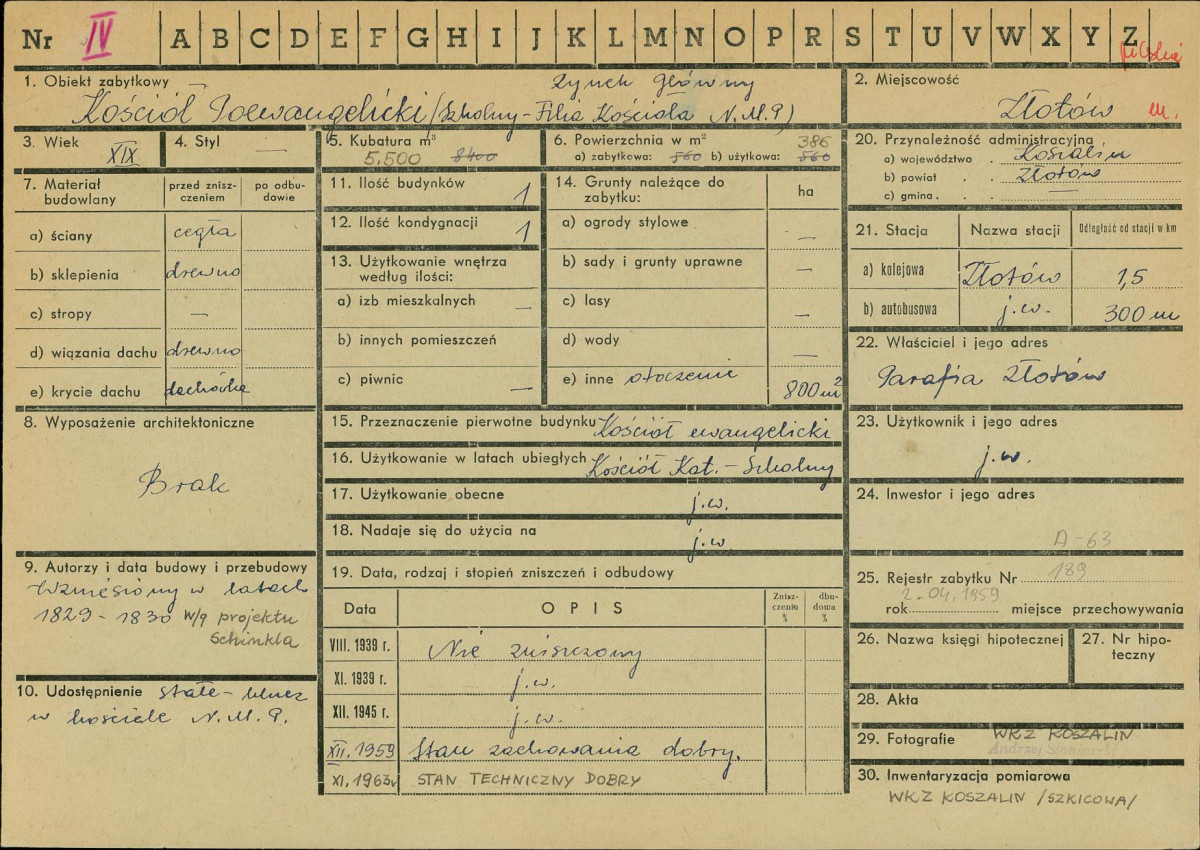 Nr IV A B C D E F G H I J K L M N O P R S T U V W X Y Z
1. Obiekt zabytkowy Rynek Główny
Kościół Poewangelicki (Szkolny - Filia Kościoła N.M.P)
2. Miejscowość
Złotów m.
3. Wiek XIX
4. Styl —
5. Kubatura m³
5.500 8400
6. Powierzchnia w m² 386
a) zabytkowa: 560 b) użytkowa: 560
20. Przynależność administracyjna
a) województwo . Koszalin
b) powiat . . Złotów
c) gmina . . . —
7. Materiał budowlany
przed znisz-
czeniem
po odbu-
dowie
a) ściany cegła
b) sklepienia drewno
c) stropy —
d) wiązania dachu drewno
e) krycie dachu dachówka
11. Ilość budynków 1
12. Ilość kondygnacji 1
13. Użytkowanie wnętrza
według ilości:
a) izb mieszkalnych —
b) innych pomieszczeń
c) piwnic —
14. Grunty należące do
zabytku:
ha
a) ogrody stylowe —
b) sady i grunty uprawne —
c) lasy —
d) wody —
e) inne otoczenie 800 m²
21. Stacja Nazwa stacji Odległość od stacji w km
a) kolejowa Złotów 1,5
b) autobusowa j.w. 300 m
22. Właściciel i jego adres
Parafia Złotów
8. Wyposażenie architektoniczne
Brak
15. Przeznaczenie pierwotne budynku Kościół ewangelicki
16. Użytkowanie w latach ubiegłych Kościół Kat. - Szkolny
17. Użytkowanie obecne j.w.
18. Nadaje się do użycia na j.w.
23. Użytkownik i jego adres
j.w.
24. Inwestor i jego adres
A-63
9. Autorzy i data budowy i przebudowy
Wzniesiony w latach
1829 - 1830 w/g projektu
Schinkla
10. Udostępnienie stałe - klucz
w kościele N.M.P.
19. Data, rodzaj i stopień zniszczeń i odbudowy
Data OPIS
Znisz-
czenia
%
dbu-
dowa
%
VIII. 1939 r. Nie zniszczony
XI. 1939 r. j.w.
XII. 1945 r. j.w.
XII. 1959 Stan zachowania dobry.
XI. 1963r STAN TECHNICZNY DOBRY
25. Rejestr zabytku Nr 189
2.04.1959
rok miejsce przechowywania
26. Nazwa księgi hipotecznej
27. Nr hipo-
teczny
28. Akta
29. Fotografie WKZ KOSZALIN
Andrzej
30. Inwentaryzacja pomiarowa
WKZ KOSZALIN /SZKICOWA/